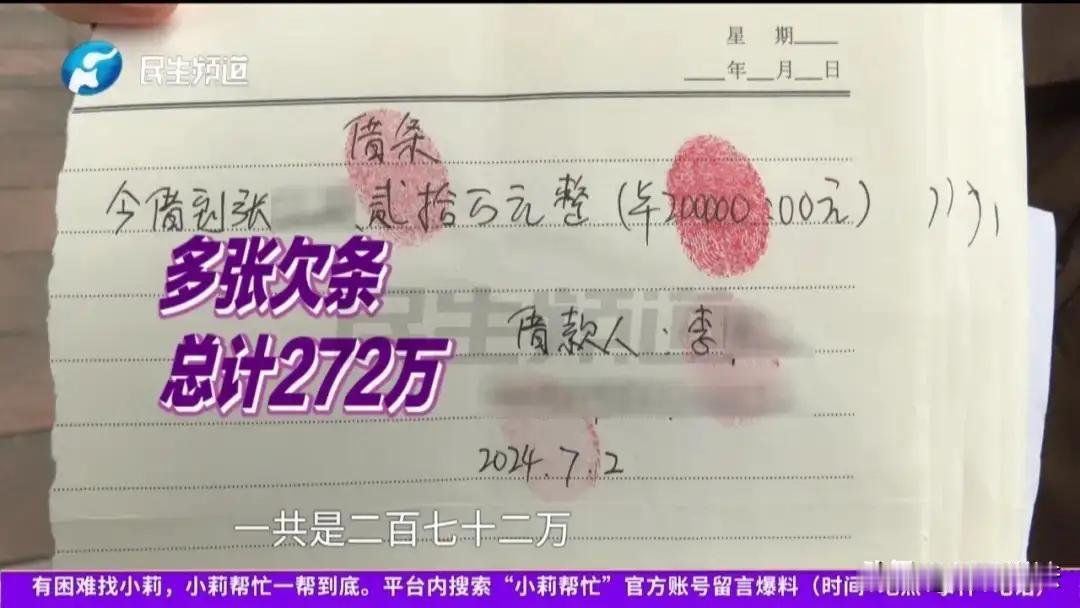 民生频道
星 期____
____年___月___日
借条
今借到张 贰拾万元整(¥200000.00元)
多张欠条
总计272万
民生频道
借款人:李
2024.7.2
一共是二百七十二万
有困难找小莉,小莉帮忙一帮到底。平台内搜索“小莉帮忙”官方账号留言爆料(时间